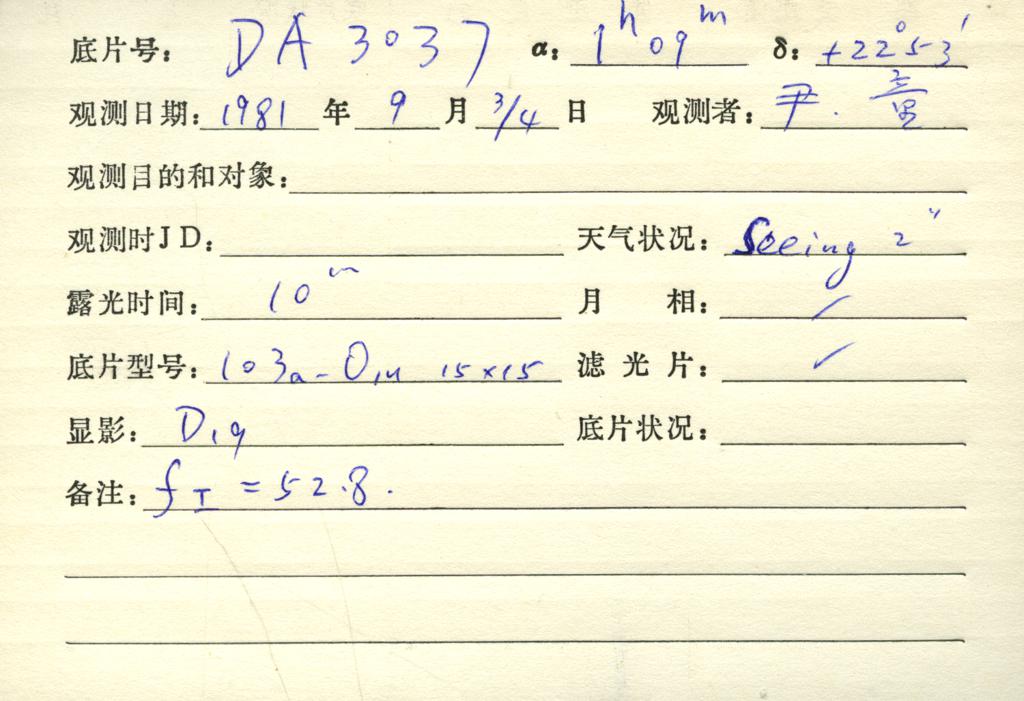 底片号: DA 3037 α: 1ʰ09ᵐ δ: +22°53′
观测日期: 1981 年 9 月 3/4 日 观测者: 尹.
观测目的和对象:
观测时JD: 天气状况: Seeing 2″
露光时间: 10ᵐ 月 相: /
底片型号: 103a-O, 15×15 滤光片: /
显影: D19 底片状况:
备注: fI = 52.8.